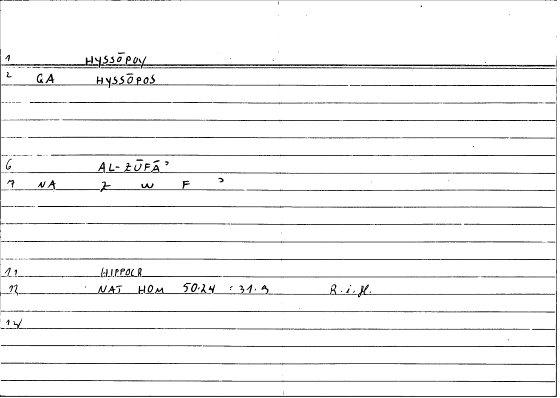 1 HYSSŌPOY
2 GA HYSSŌPOS
6 AL-ZŪFĀʾ
7 NA Z W F ʾ
11 HIPPOCR
12 NAT HOM 50.24 : 31.9 R.i.fl.
14